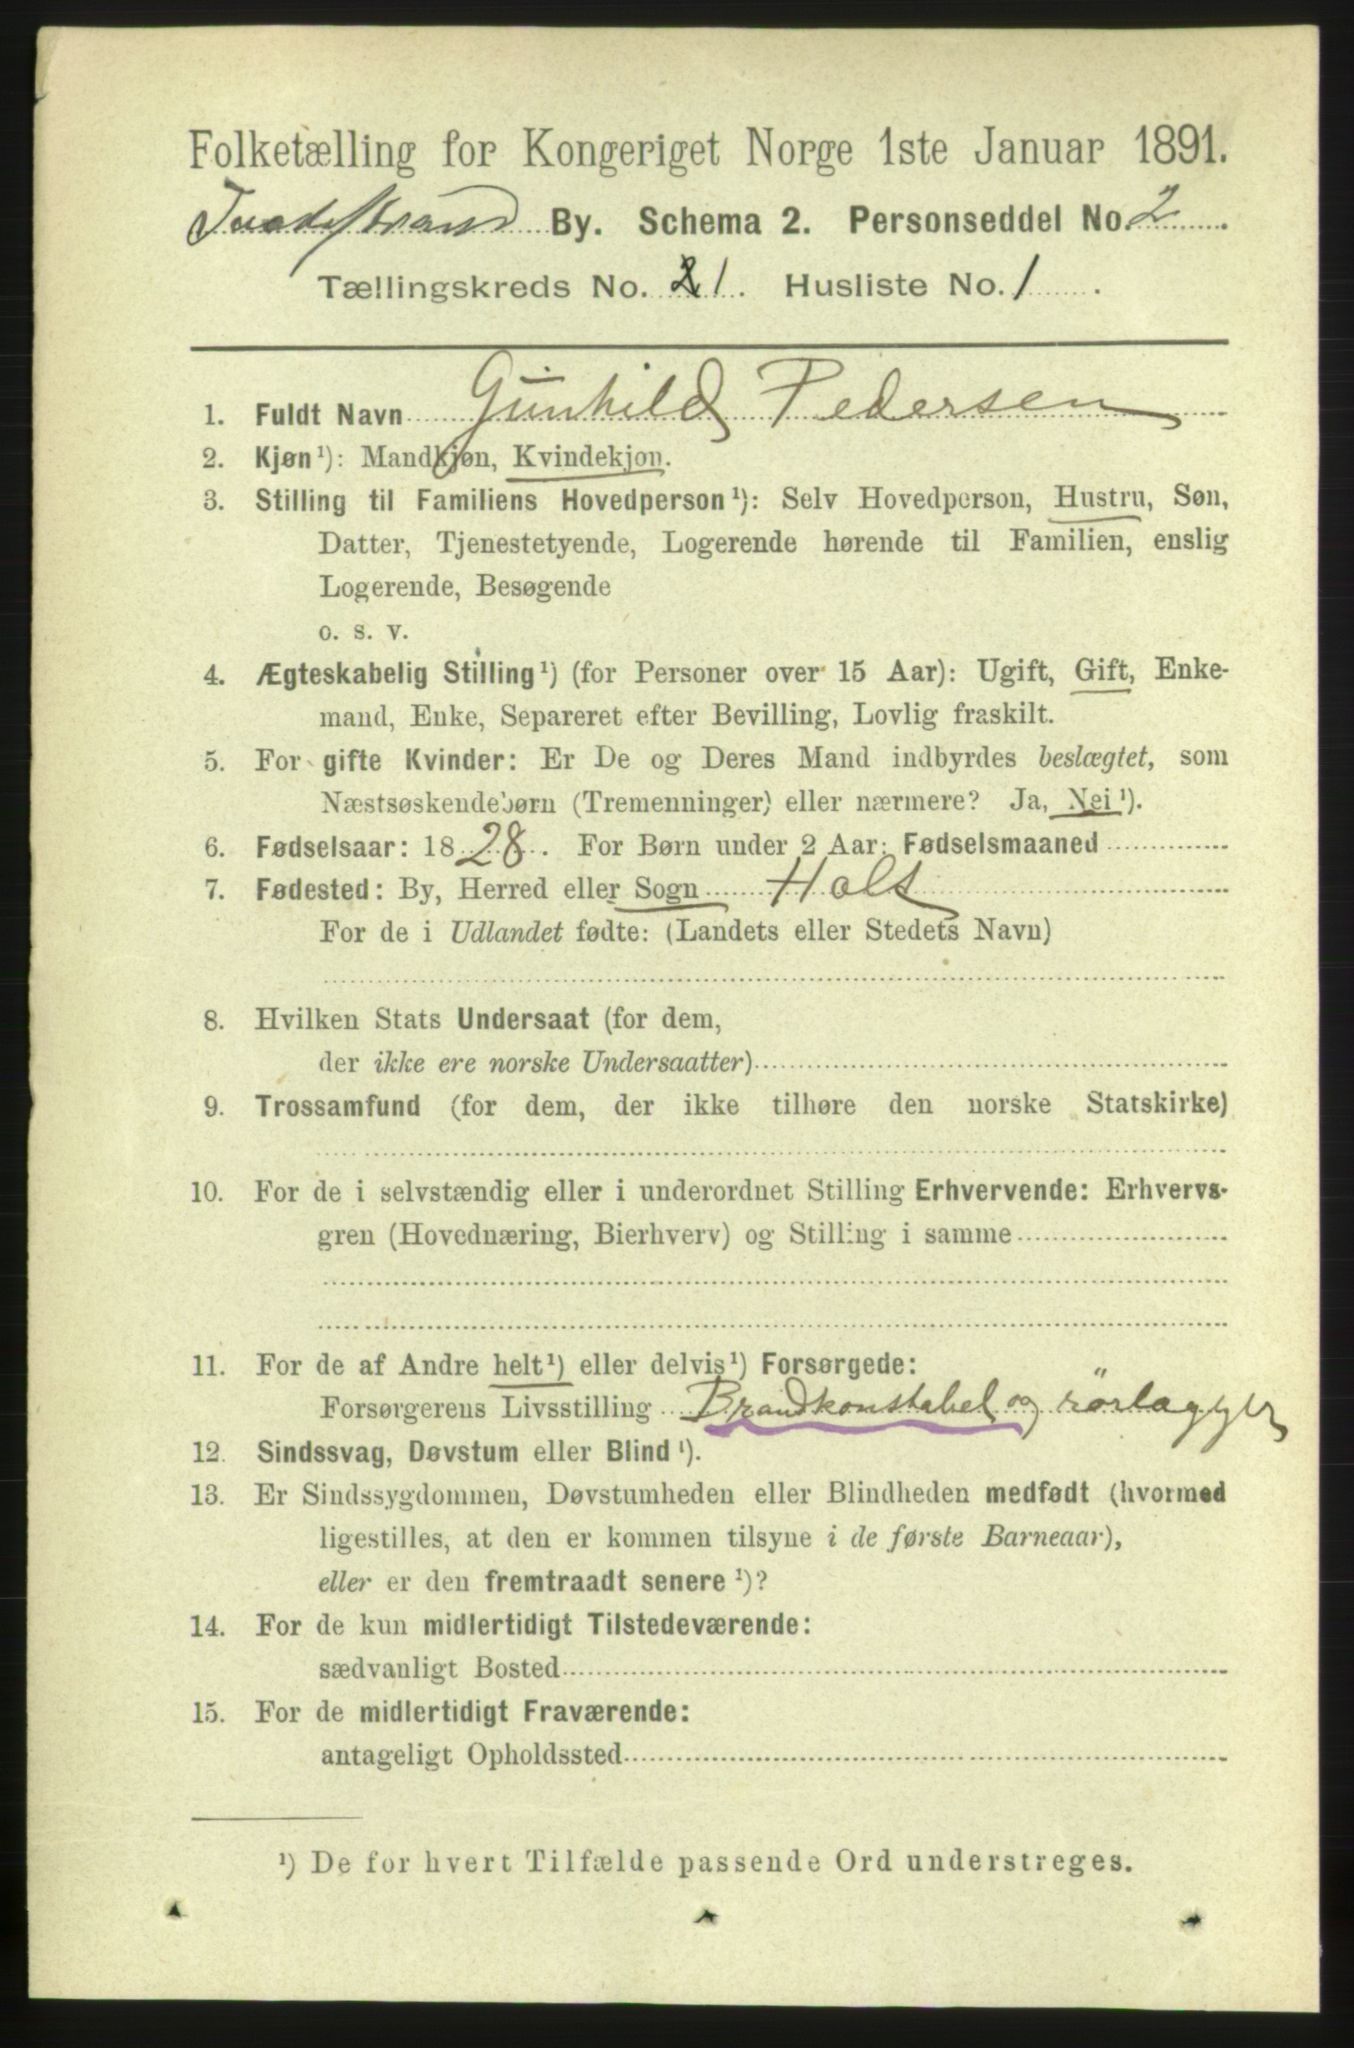 Folketælling for Kongeriget Norge 1ste Januar 1891.
Tvedestrand By. Schema 2. Personseddel No. 2
Tællingskreds No. 1. Husliste No. 1.
1. Fuldt Navn Gunhild Pedersen
2. Kjøn¹): Mandkjøn, Kvindekjon.
3. Stilling til Familiens Hovedperson¹): Selv Hovedperson, Hustru, Søn,
Datter, Tjenestetyende, Logerende hørende til Familien, enslig
Logerende, Besøgende
o. s. v.
4. Ægteskabelig Stilling¹) (for Personer over 15 Aar): Ugift, Gift, Enke-
mand, Enke, Separeret efter Bevilling, Lovlig fraskilt.
5. For gifte Kvinder: Er De og Deres Mand indbyrdes beslægtet, som
Næstsøskendebørn (Tremenninger) eller nærmere? Ja, Nei¹).
6. Fødselsaar: 1828. For Børn under 2 Aar: Fødselsmaaned
7. Fødested: By, Herred eller Sogn Holt
For de i Udlandet fødte: (Landets eller Stedets Navn)
8. Hvilken Stats Undersaat (for dem,
der ikke ere norske Undersaatter)
9. Trossamfund (for dem, der ikke tilhøre den norske Statskirke)
10. For de i selvstændig eller i underordnet Stilling Erhvervende: Erhvervs-
gren (Hovednæring, Bierhverv) og Stilling i samme
11. For de af Andre helt¹) eller delvis¹) Forsørgede:
Forsørgerens Livsstilling Brandkonstabel og rörlægger
12. Sindssvag, Døvstum eller Blind¹).
13. Er Sindssygdommen, Døvstumheden eller Blindheden medfødt (hvormed
ligestilles, at den er kommen tilsyne i de første Barneaar),
eller er den fremtraadt senere¹)?
14. For de kun midlertidigt Tilstedeværende:
sædvanligt Bosted
15. For de midlertidigt Fraværende:
antageligt Opholdssted
¹) De for hvert Tilfælde passende Ord understreges.